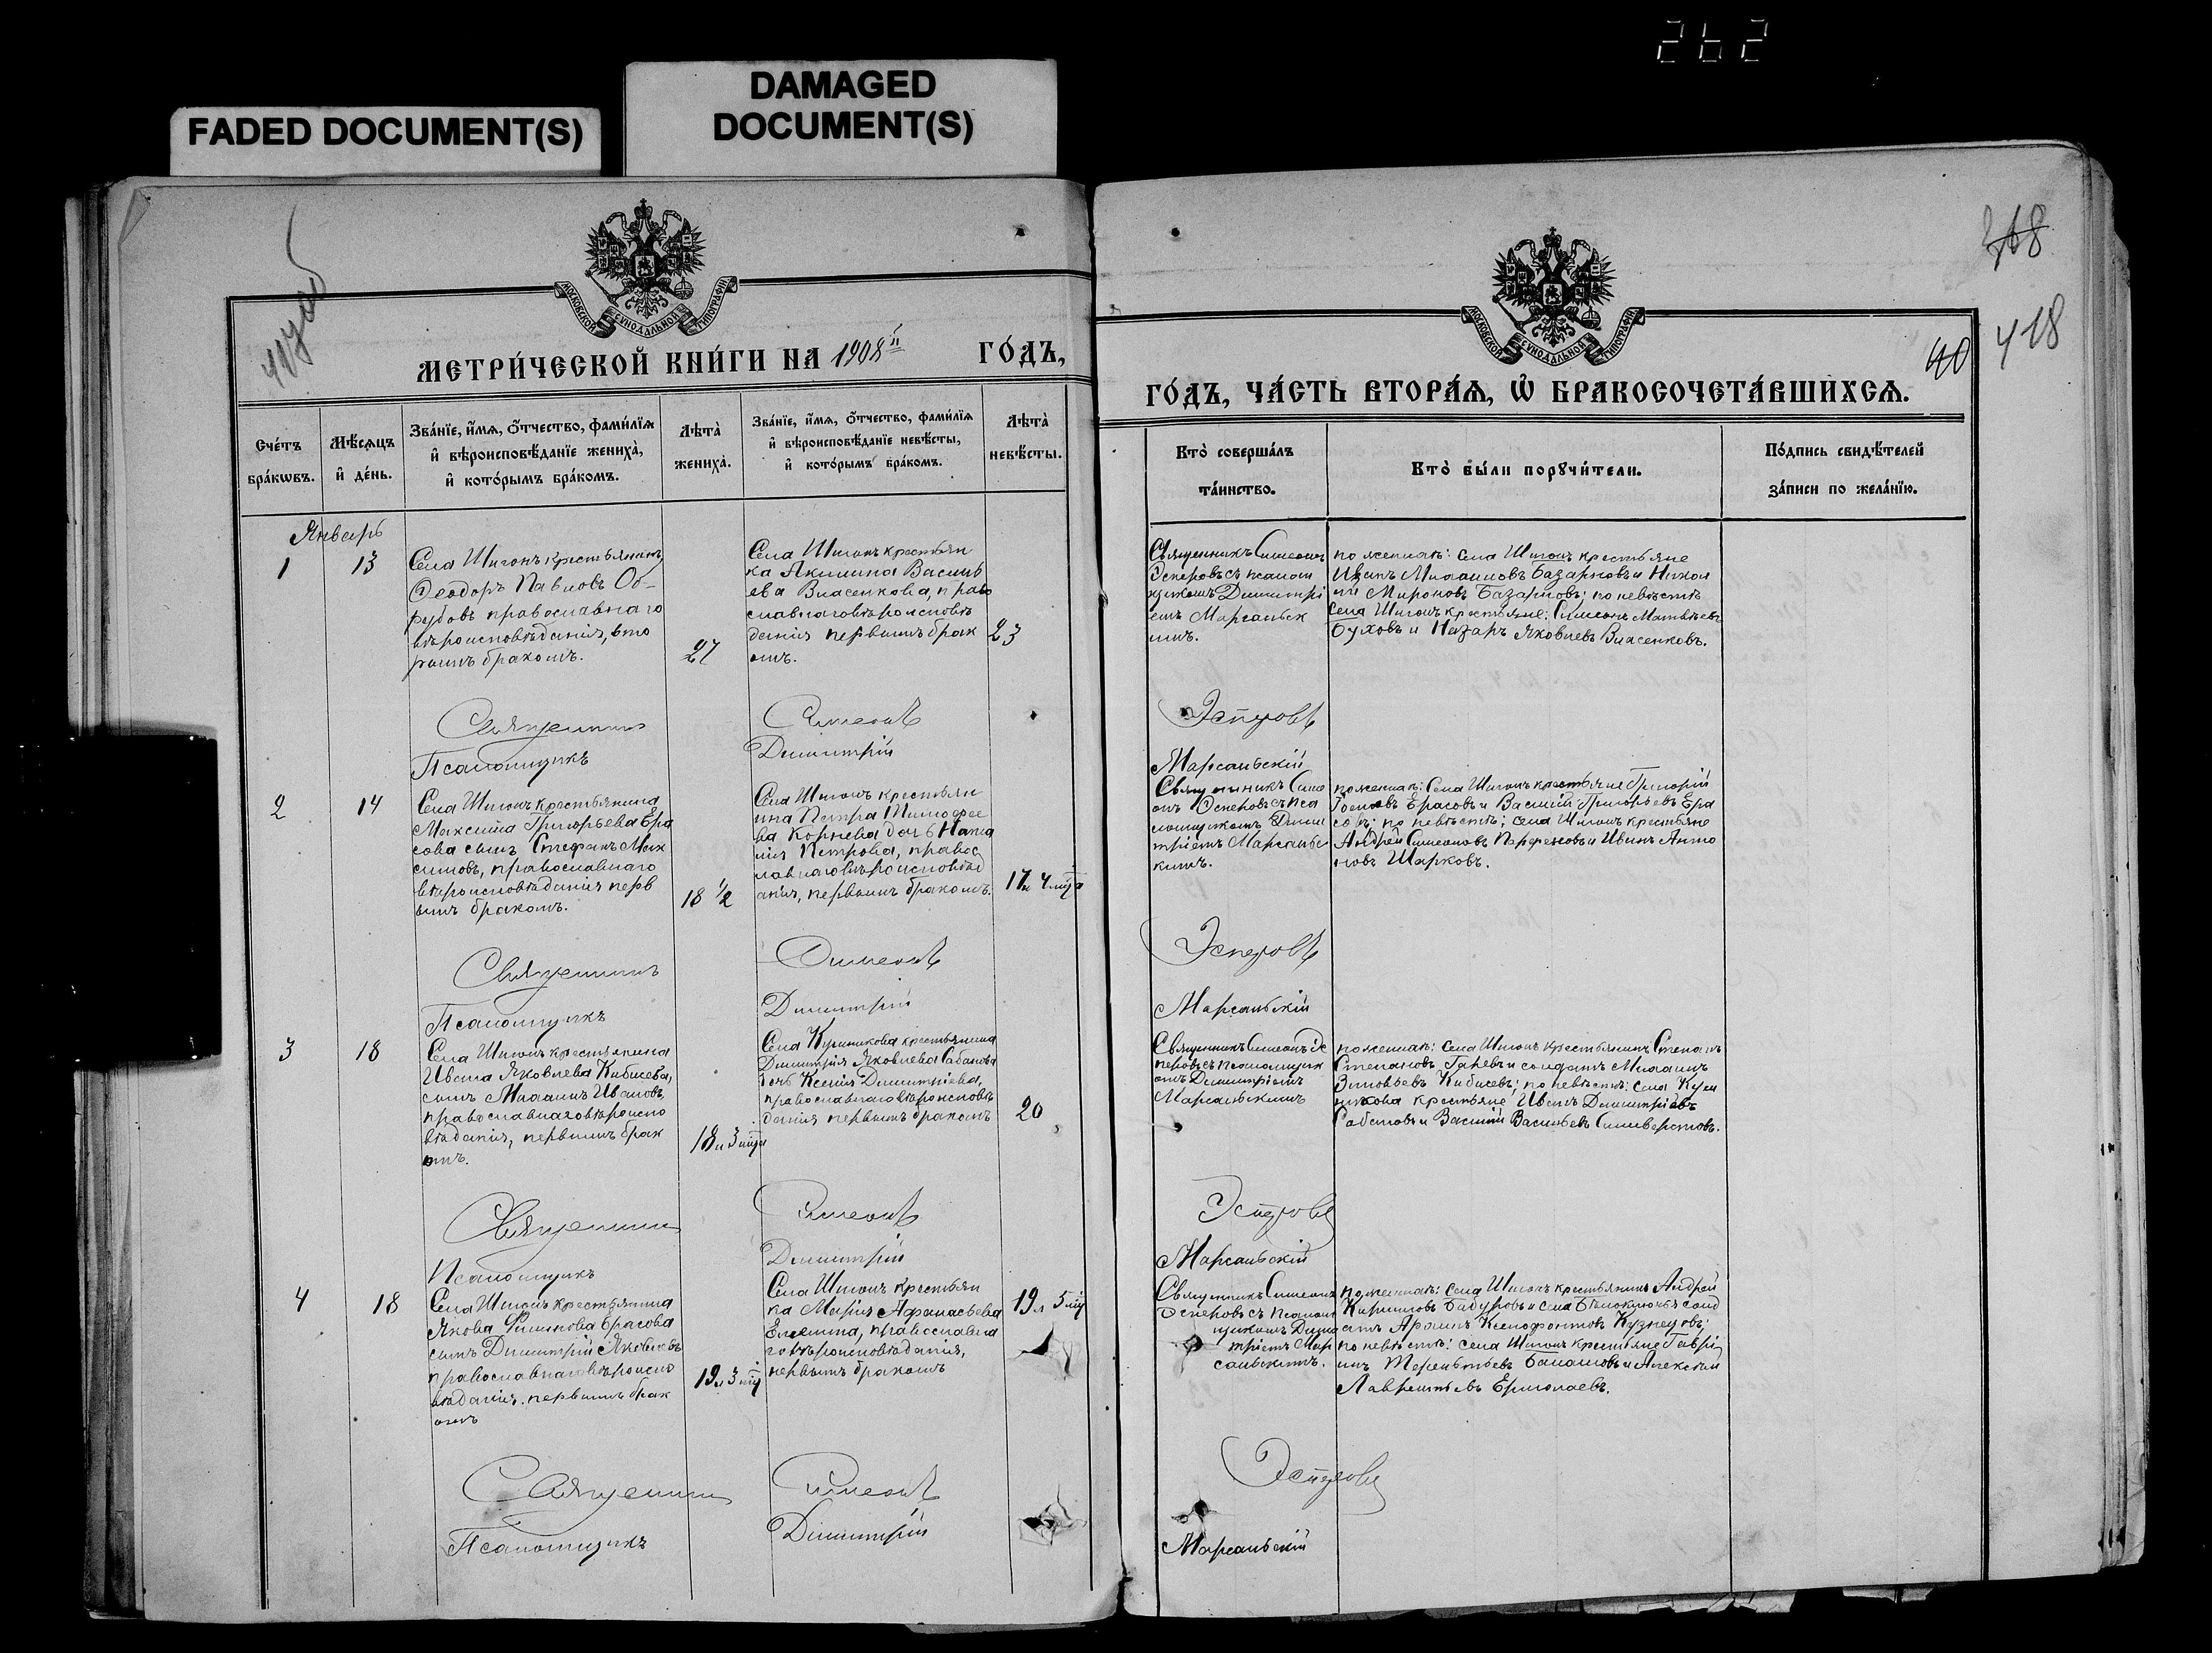 262
FADED DOCUMENT(S)
DAMAGED
DOCUMENT(S)
МОСКОВСКОЙ СѴНОДАЛЬНОЙ ТИПОГРАФІИ
МЕТРИ́ЧЕСКОЙ КНИ́ГИ НА 1908й ГО́ДЪ,
Сче́тъ бра́кѡвъ.
Мѣ́сяцъ и҆ де́нь.
Зва́нїе, и҆́мѧ, ѻ҆́тчество, фами́лїѧ и҆ вѣроисповѣ́данїе жениха̀, и҆ кото́рымъ бра́комъ.
Лѣта̀ жениха̀.
Зва́нїе, и҆́мѧ, ѻ҆́тчество, фами́лїѧ и҆ вѣроисповѣ́данїе невѣ́сты, и҆ кото́рымъ бра́комъ.
Лѣта̀ невѣ́сты.
Январь
1
13
Села Шигонъ крестьянинъ
Ѳеодоръ Павловъ Об-
рубовъ православнаго
вѣроисповѣданія, вто
рымъ бракомъ.
27
Села Шигонъ крестьян
ка Акилина Василь
ева Власенкова, право
славнаго вѣроисповѣ
данія первымъ брак
омъ.
23
Священникъ
Симеонъ
Псаломщикъ
Димитрій
2
14
Села Шигонъ крестьянина
Максима Григорьева Ера
сова сынъ Стефанъ Мак
симовъ, православнаго
вѣроисповѣданія перв
ымъ бракомъ.
18 1/2
Села Шигонъ крестьян
ина Петра Тимофее
ва Корнева дочь
Петрова, правос
лавнаго вѣроисповѣд
анія, первымъ бракомъ.
17 и 4 мца
Священникъ
Симеонъ
Псаломщикъ
Димитрій
3
18
Села Шигонъ крестьянина
Ивана Яковлева Кибисева,
сынъ Михаилъ Ивановъ,
православнаго вѣроиспо
вѣданія, первымъ брак
омъ.
18 и 3 мца
Села Куриникова крестьянина
Димитрія Яковлева Сабанова
дочь Ксенія Димитріева,
православнаго вѣроисповѣ
данія первымъ бракомъ
20
Священникъ
Симеонъ
Псаломщикъ
Димитрій
4
18
Села Шигонъ крестьянина
Якова Филипова Ерасова
сынъ Димитрій Яковлевъ
православнаго вѣроиспо
вѣданія. первымъ брак
омъ
19 и 3 мц
Села Шигонъ крестьян
ка Марія Афанасьева
православна
го вѣроисповѣданія,
первымъ бракомъ
19 и 5 мц
Священникъ
Симеонъ
Псаломщикъ
Димитрій
418
40
МОСКОВСКОЙ СѴНОДАЛЬНОЙ ТИПОГРАФІИ
ГО́ДЪ, ЧА́СТЬ ВТОРА́Ѧ, Ѡ҆ БРАКОСОЧЕТА́ВШИХСѦ.
Кто̀ соверша́лъ та́инство.
Кто̀ бы́ли порꙋчи́тели.
По́дпись свидѣ́телей за́писи по жела́нїю.
Священникъ Симеонъ
Эсперовъ съ псалом
щикомъ Димитрі
емъ Марсальск
имъ.
по женихѣ: села Шигонъ крестьяне
Иванъ Михаиловъ Базарновъ и Никол
ай Мироновъ Базарновъ; по невѣстѣ
села Шигонъ крестьяне: Симеонъ Матвѣевъ
Буховъ и Назаръ Яковлевъ Власенковъ.
Эсперовъ
Марсальскій
Священникъ Симе
онъ Эсперовъ съ пса
ломщикомъ Дими
тріемъ Марсальс
кимъ.
по женихѣ: Села Шигонъ крестьяне Григорій
Ерасовъ и Василій Григорьевъ Ера
совъ; по невѣстѣ; села Шигонъ крестьяне
Андрей Симеоновъ Парфеновъ и Иванъ Анто
новъ Шарковъ.
Эсперовъ
Марсальскій
Священникъ Симеонъ Эс
перовъ съ псаломщик
омъ Димитріемъ
Марсальскимъ
по женихѣ: села Шигонъ крестьянинъ Степанъ
Степановъ Ганевъ и солдатъ Михаилъ
Зиновьевъ Кибисевъ; по невѣстѣ: села Кури
никова крестьяне Иванъ Димитріевъ
Сабановъ и Василій Васильевъ Сильверстовъ.
Эсперовъ
Марсальскій
Священникъ Симеонъ
Эсперовъ съ псалом
щикомъ Дими
тріемъ Мар
сальскимъ.
по женихѣ: села Шигонъ крестьянинъ Андрей
Кириловъ Бабуровъ и села Бѣлоключья солд
атъ Ксенофонтовъ Кузнецовъ;
по невѣстѣ: села Шигонъ крестьяне Гаврі
илъ Терентьевъ Балашовъ и Алексѣй
Лаврентьевъ Ермолаевъ.
Эсперовъ
Марсальскій